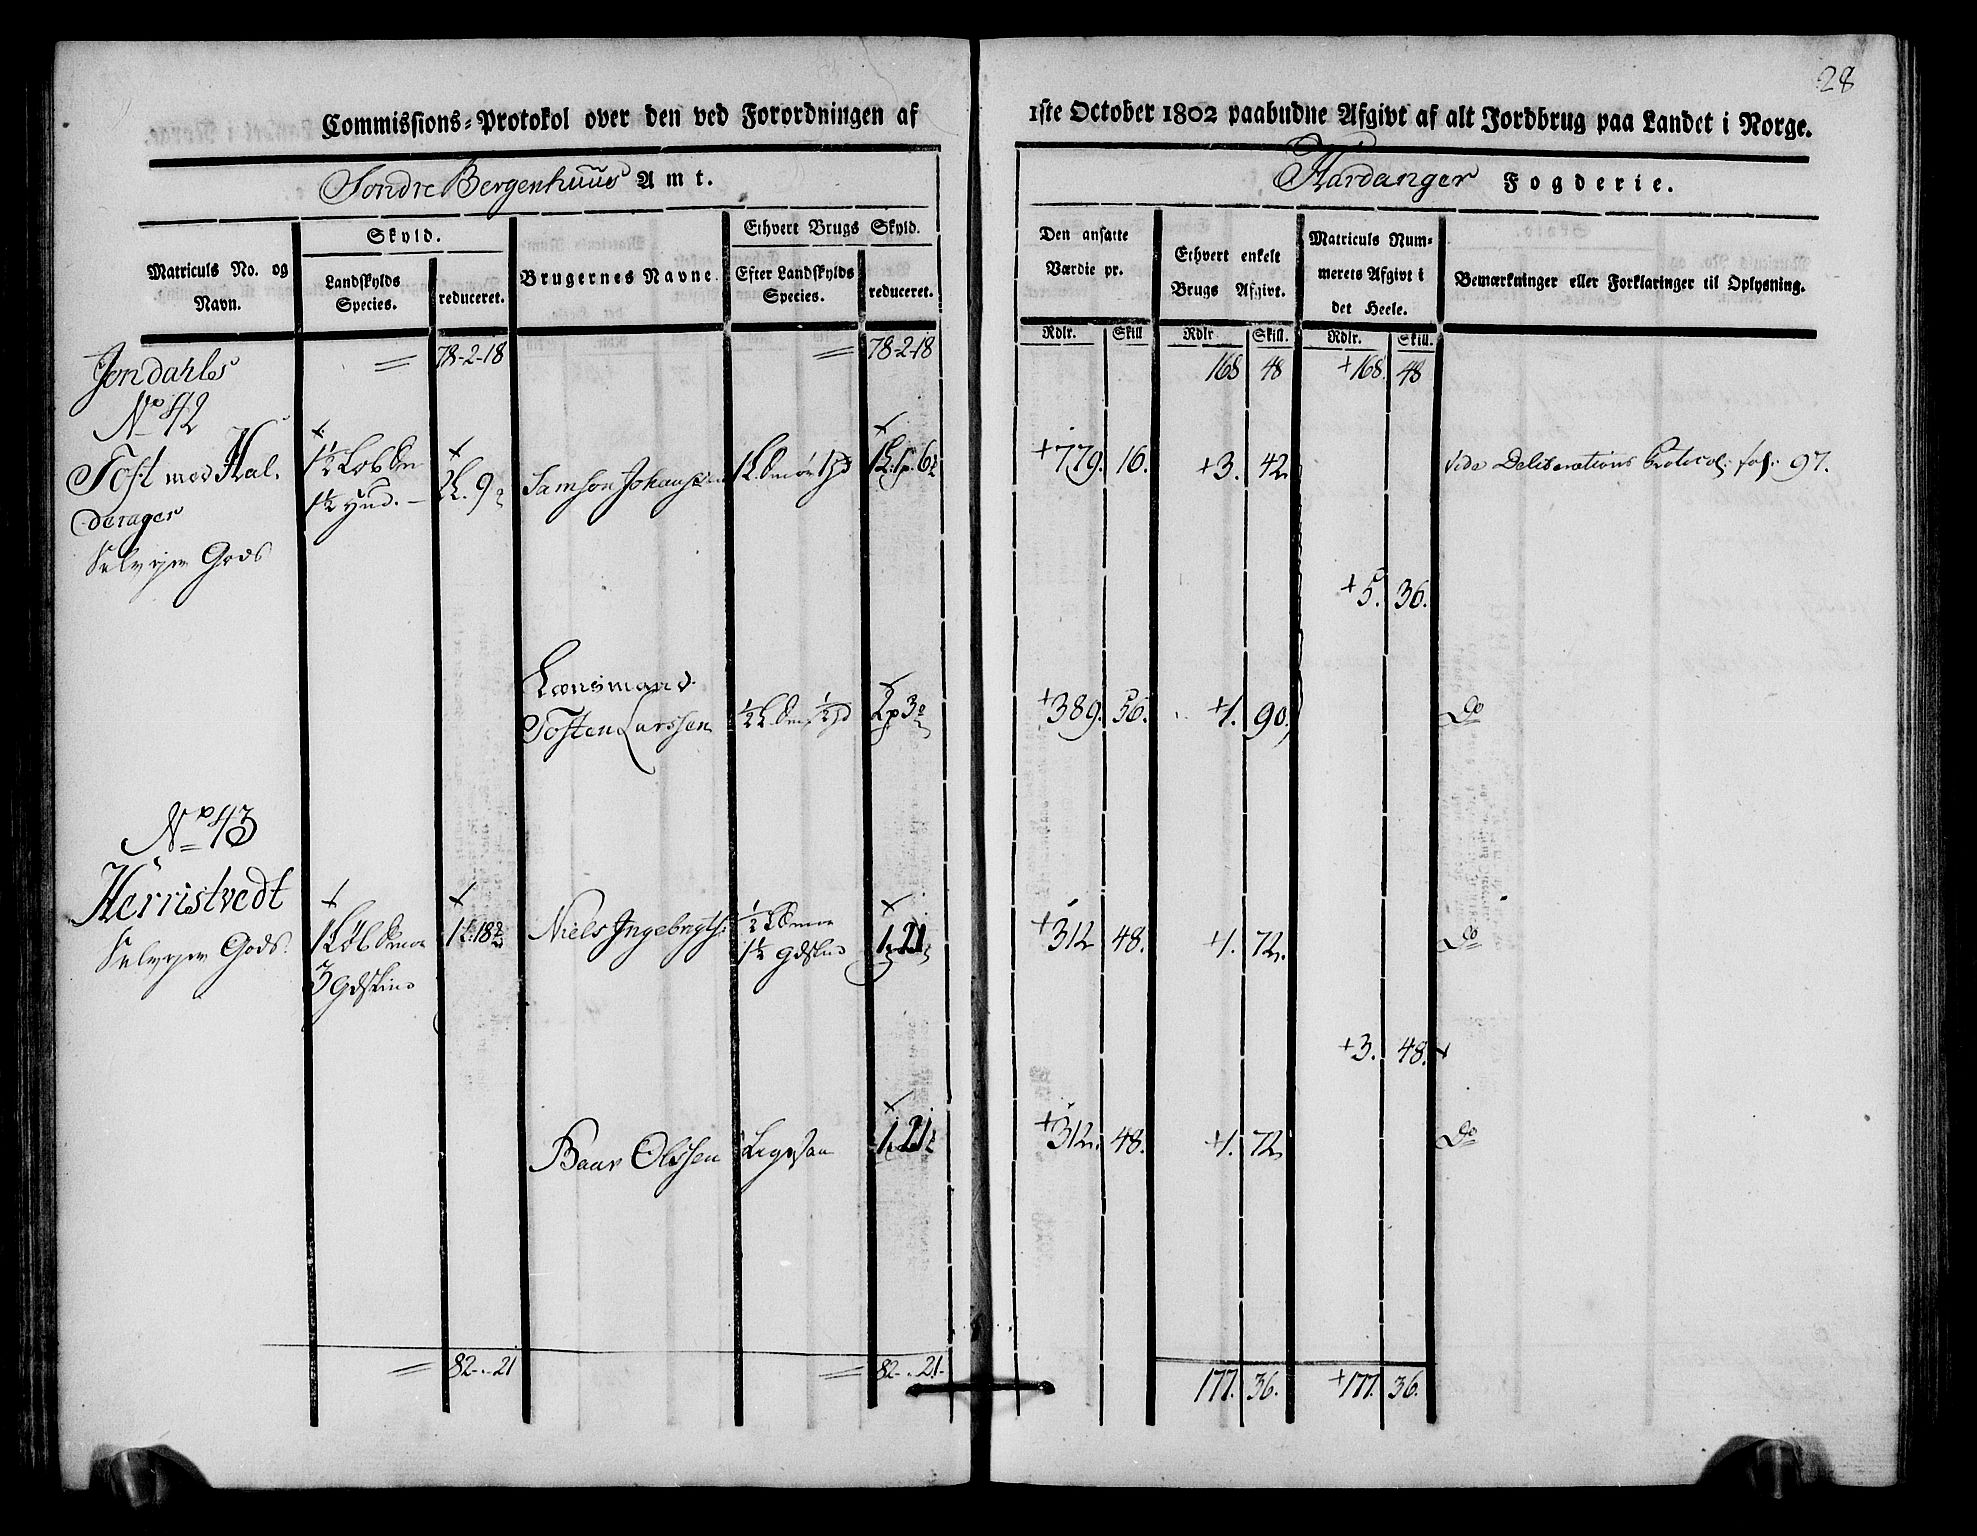 28
Commissions-Protokol over den ved Forordningen af 1ste October 1802 paabudne Afgivt af alt Jordbrug paa Landet i Norge.
Søndre Bergenhuus Amt. Hardanger Fogderie.
Matriculs No. og Navn.
Skyld.
Landskylds Species.
reduceret.
Brugernes Navne.
Ethvert Brugs Skyld.
Efter Landskylds Species.
reduceret.
Den ansatte Værdie pr.
Rdlr. Skill
Ethvert enkelt Brugs Afgivt.
Rdlr Skill.
Matriculs Nummerets Afgivt i det Heele.
Rdlr. Skill.
Bemærkninger eller Forklaringer til Oplysning.
Jondahls = 78-2-18 = 78-2-18 168 48 +168. 48
No 42
Tost med Hal-
derager
Selveyer Gods
1½ Løb Sm
1½ Hud.
Samson Johansen
+779. 16. +3. 42. Vide Deliberations Protocol fol: 97.
+5. 36.
Lænsmand
Tosten Larssen
+389. 56. +1. 90. Do
No 43
Herristvedt
Selveyer Gods.
1 Løb Smør
3 Gdskind
Niels Ingebrigts:
1½ Gdskind
+312 48. +1. 72. Do
+3. 48.
Baar Olssen Ligesaa
+312. 48. +1. 72 Do
= 82-„-21 = 82-„-21- 177. 36. +177. 36.